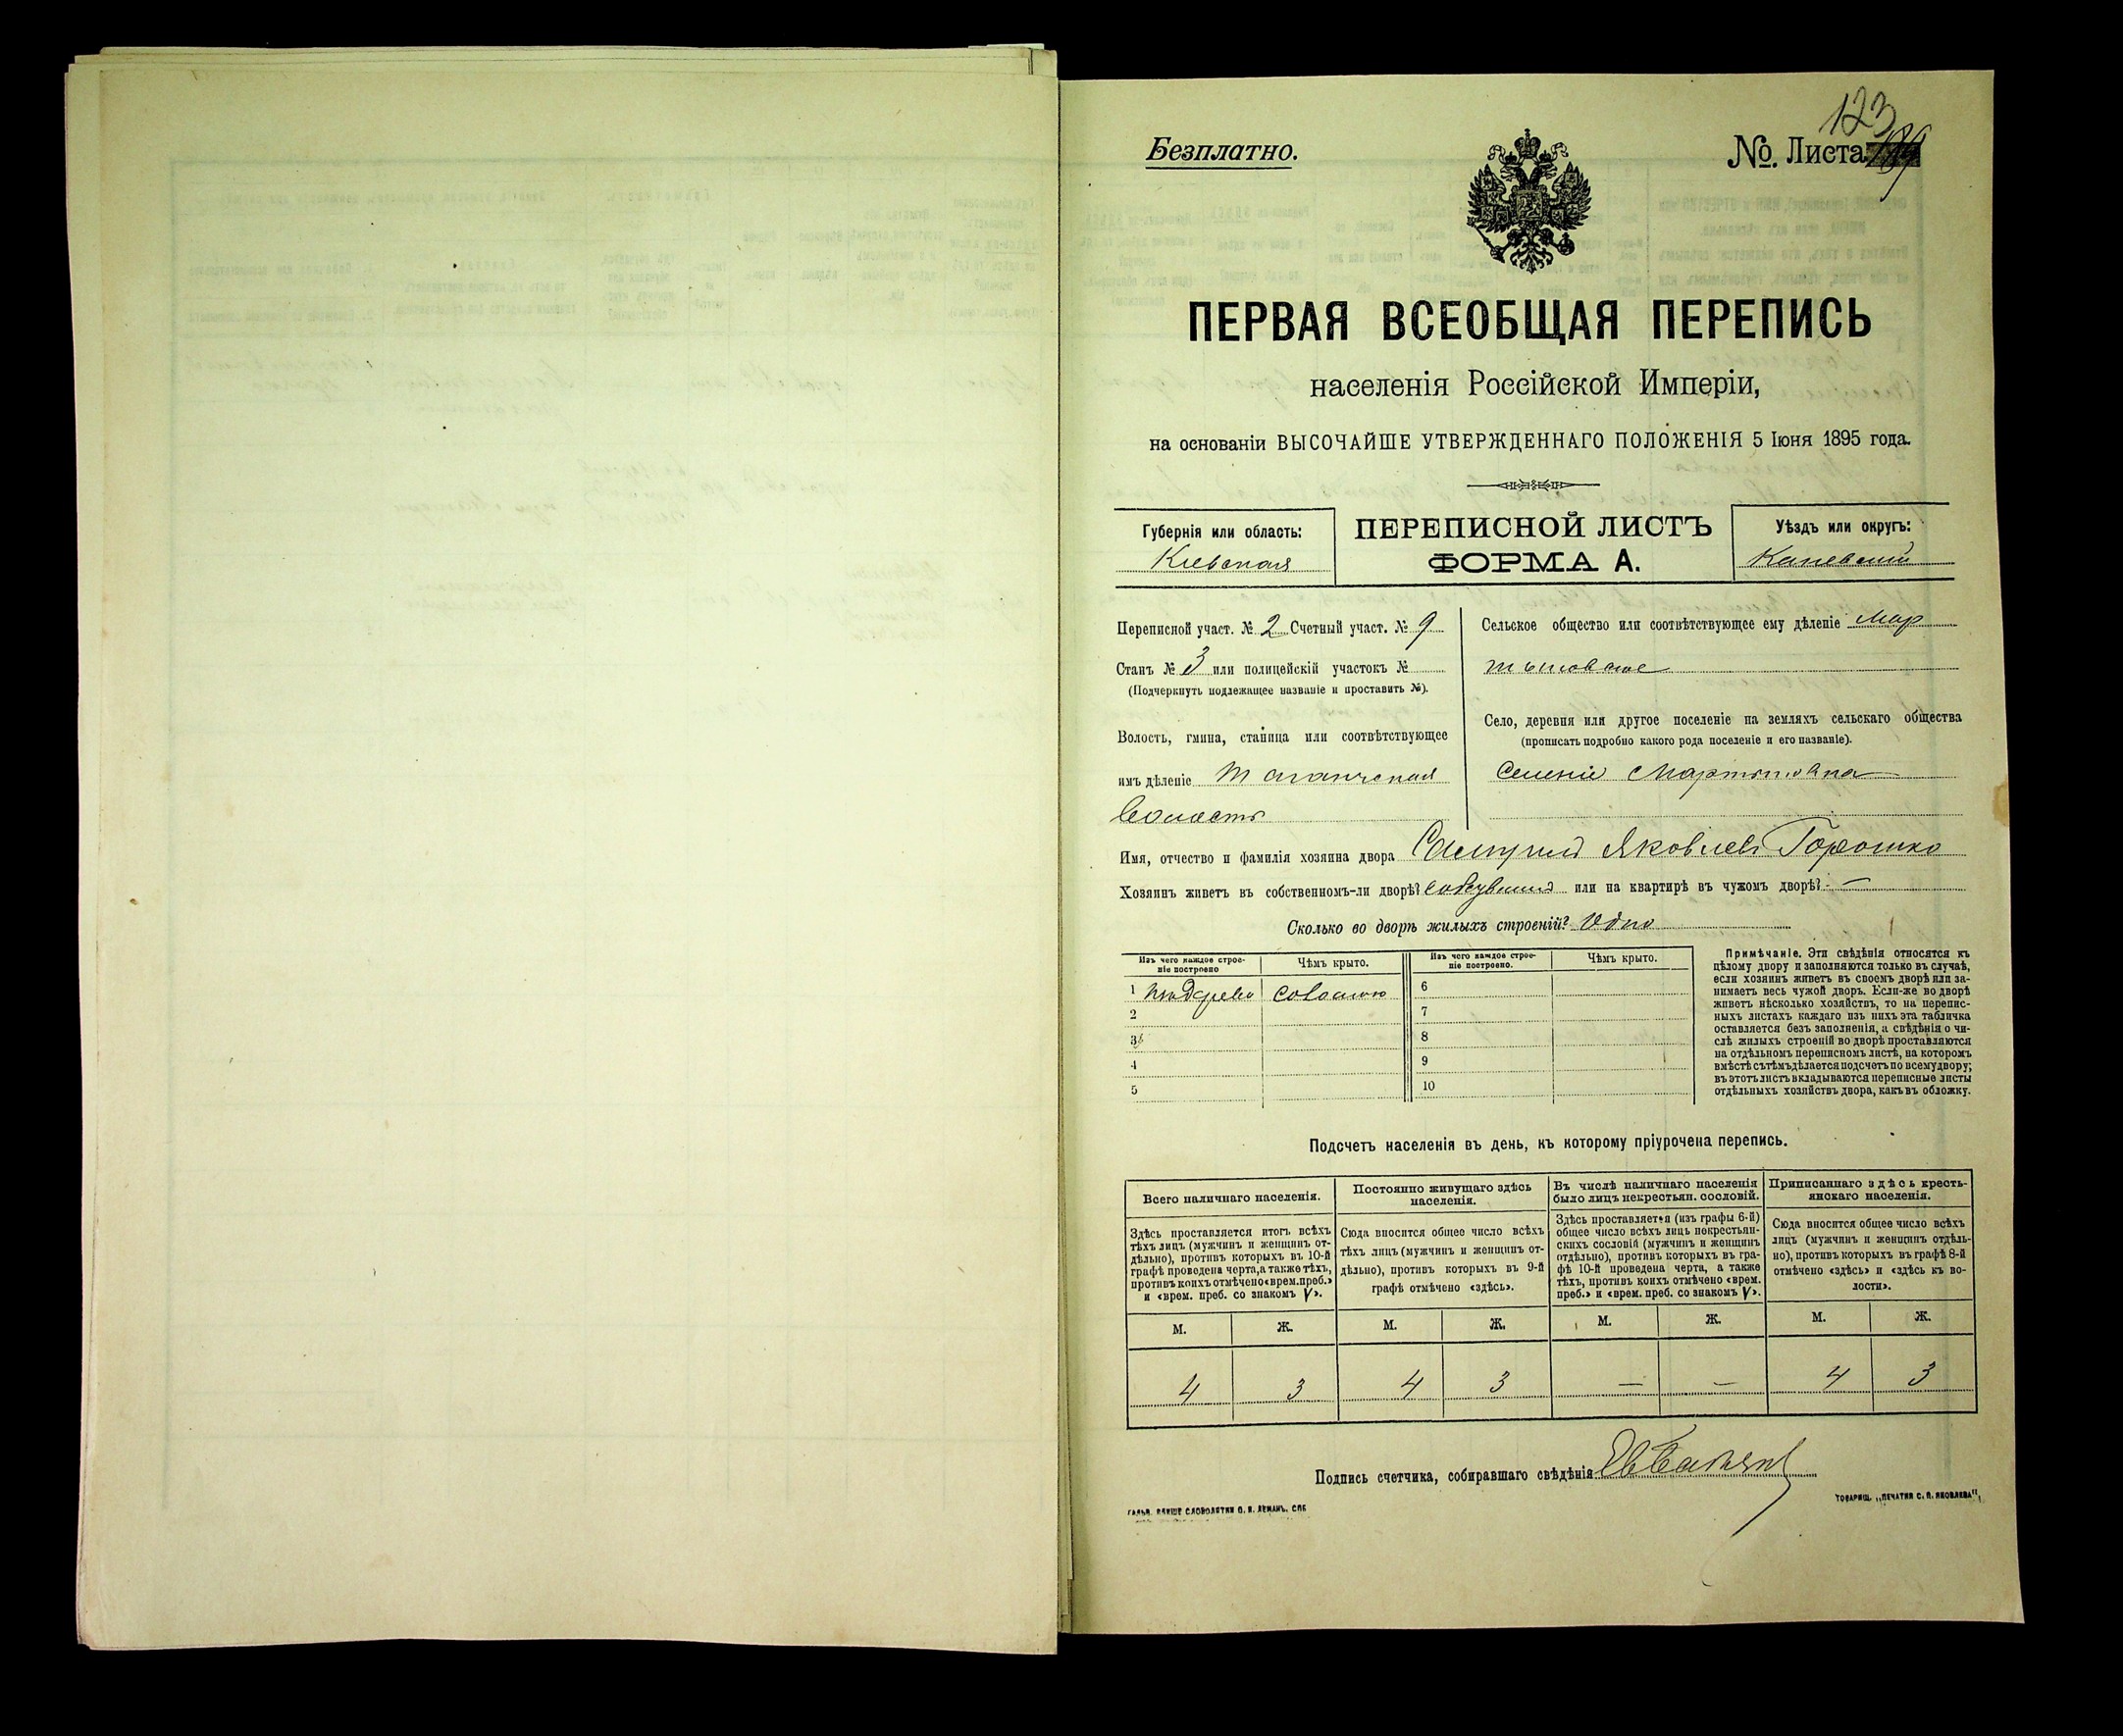 123
Безплатно.
№. Листа
ПЕРВАЯ ВСЕОБЩАЯ ПЕРЕПИСЬ
населенія Россійской Имперіи,
на основаніи ВЫСОЧАЙШЕ УТВЕРЖДЕННАГО ПОЛОЖЕНІЯ 5 Іюня 1895 года.
Губернія или область:
Кіевская
ПЕРЕПИСНОЙ ЛИСТЪ
ФОРМА А.
Уѣздъ или округъ:
Каневский
Переписной участ. № 2 Счетный участ. № 9
Станъ № 3 или полицейскій участокъ №
(Подчеркнуть подлежащее названіе и проставить №).
Волость, гмина, станица или соотвѣтствующее
имъ дѣленіе Таганчская
волость
Сельское общество или соотвѣтствующее ему дѣленіе Мар
тыновское
Село, деревня или другое поселеніе на земляхъ сельскаго общества
(прописать подробно какого рода поселеніе и его названіе).
Селеніе Мартыновка
Имя, отчество и фамилія хозяина двора Самуилъ Яковлевъ Горошко
Хозяинъ живетъ въ собственномъ-ли дворѣ? или на квартирѣ въ чужомъ дворѣ? —
Сколько во дворѣ жилыхъ строеній? Одно
Изъ чего каждое строе-
ніе построено
Чѣмъ крыто.
Изъ чего каждое строе-
ніе построено.
Чѣмъ крыто.
1 соломою
2
3
4
5
6
7
8
9
10
Примѣчаніе. Эти свѣдѣнія относятся къ
цѣлому двору и заполняются только въ случаѣ,
если хозяинъ живетъ въ своемъ дворѣ или за-
нимаетъ весь чужой дворъ. Если-же во дворѣ
живетъ нѣсколько хозяйствъ, то на перепис-
ныхъ листахъ каждаго изъ нихъ эта табличка
оставляется безъ заполненія, а свѣдѣнія о чи-
слѣ жилыхъ строеній во дворѣ проставляются
на отдѣльномъ переписномъ листѣ, на которомъ
вмѣстѣ съ тѣмъ дѣлается подсчетъ по всему двору;
въ этотъ листъ вкладываются переписные листы
отдѣльныхъ хозяйствъ двора, какъ въ обложку.
Подсчетъ населенія въ день, къ которому пріурочена перепись.
Всего наличнаго населенія.
Здѣсь проставляется итогъ всѣхъ
тѣхъ лицъ (мужчинъ и женщинъ от-
дѣльно), противъ которыхъ въ 10-й
графѣ проведена черта, а также тѣхъ,
противъ коихъ отмѣчено «врем. преб.»
и «врем. преб. со знакомъ V».
Постоянно живущаго здѣсь
населенія.
Сюда вносится общее число всѣхъ
тѣхъ лицъ (мужчинъ и женщинъ от-
дѣльно), противъ которыхъ въ 9-й
графѣ отмѣчено «здѣсь».
Въ числѣ наличнаго населенія
было лицъ некрестьян. сословій.
Здѣсь проставляется (изъ графы 6-й)
общее число всѣхъ лицъ некрестьян-
скихъ сословій (мужчинъ и женщинъ
отдѣльно), противъ которыхъ въ гра-
фѣ 10-й проведена черта, а также
тѣхъ, противъ коихъ отмѣчено «врем.
преб.» и «врем. преб. со знакомъ V».
Приписаннаго здѣсь кресть-
янскаго населенія.
Сюда вносится общее число всѣхъ
лицъ (мужчинъ и женщинъ отдѣль-
но), противъ которыхъ въ графѣ 8-й
отмѣчено «здѣсь» и «здѣсь къ во-
лости».
М. Ж. М. Ж. М. Ж. М. Ж.
4 3 4 3 — — 4 3
Подпись счетчика, собиравшаго свѣдѣнія
ГАЛЬВ. КЛИШЕ СЛОВОЛИТНИ О. И. ЛЕМАНЪ. СПБ
ТОВАРИЩ. „ПЕЧАТНЯ С. П. ЯКОВЛЕВА“,